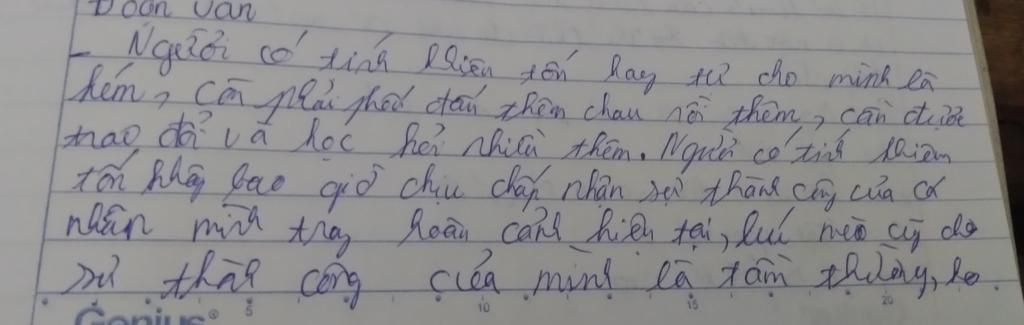 Đoạn văn
- Người có tính khiên tốn hay tự cho mình là
kém, cần phải phấn đấu thêm chau rồi thêm, cần được
trao đổi và học hỏi nhiều thêm. Người có tính khiêm
tốn không bao giờ chịu chấp nhận sự thành công của cá
nhân mình trong hoàn cảnh hiện tại, lúc nào cũng cho
sự thành công của mình là tầm thường, họ
Genius®
5 10 15 20